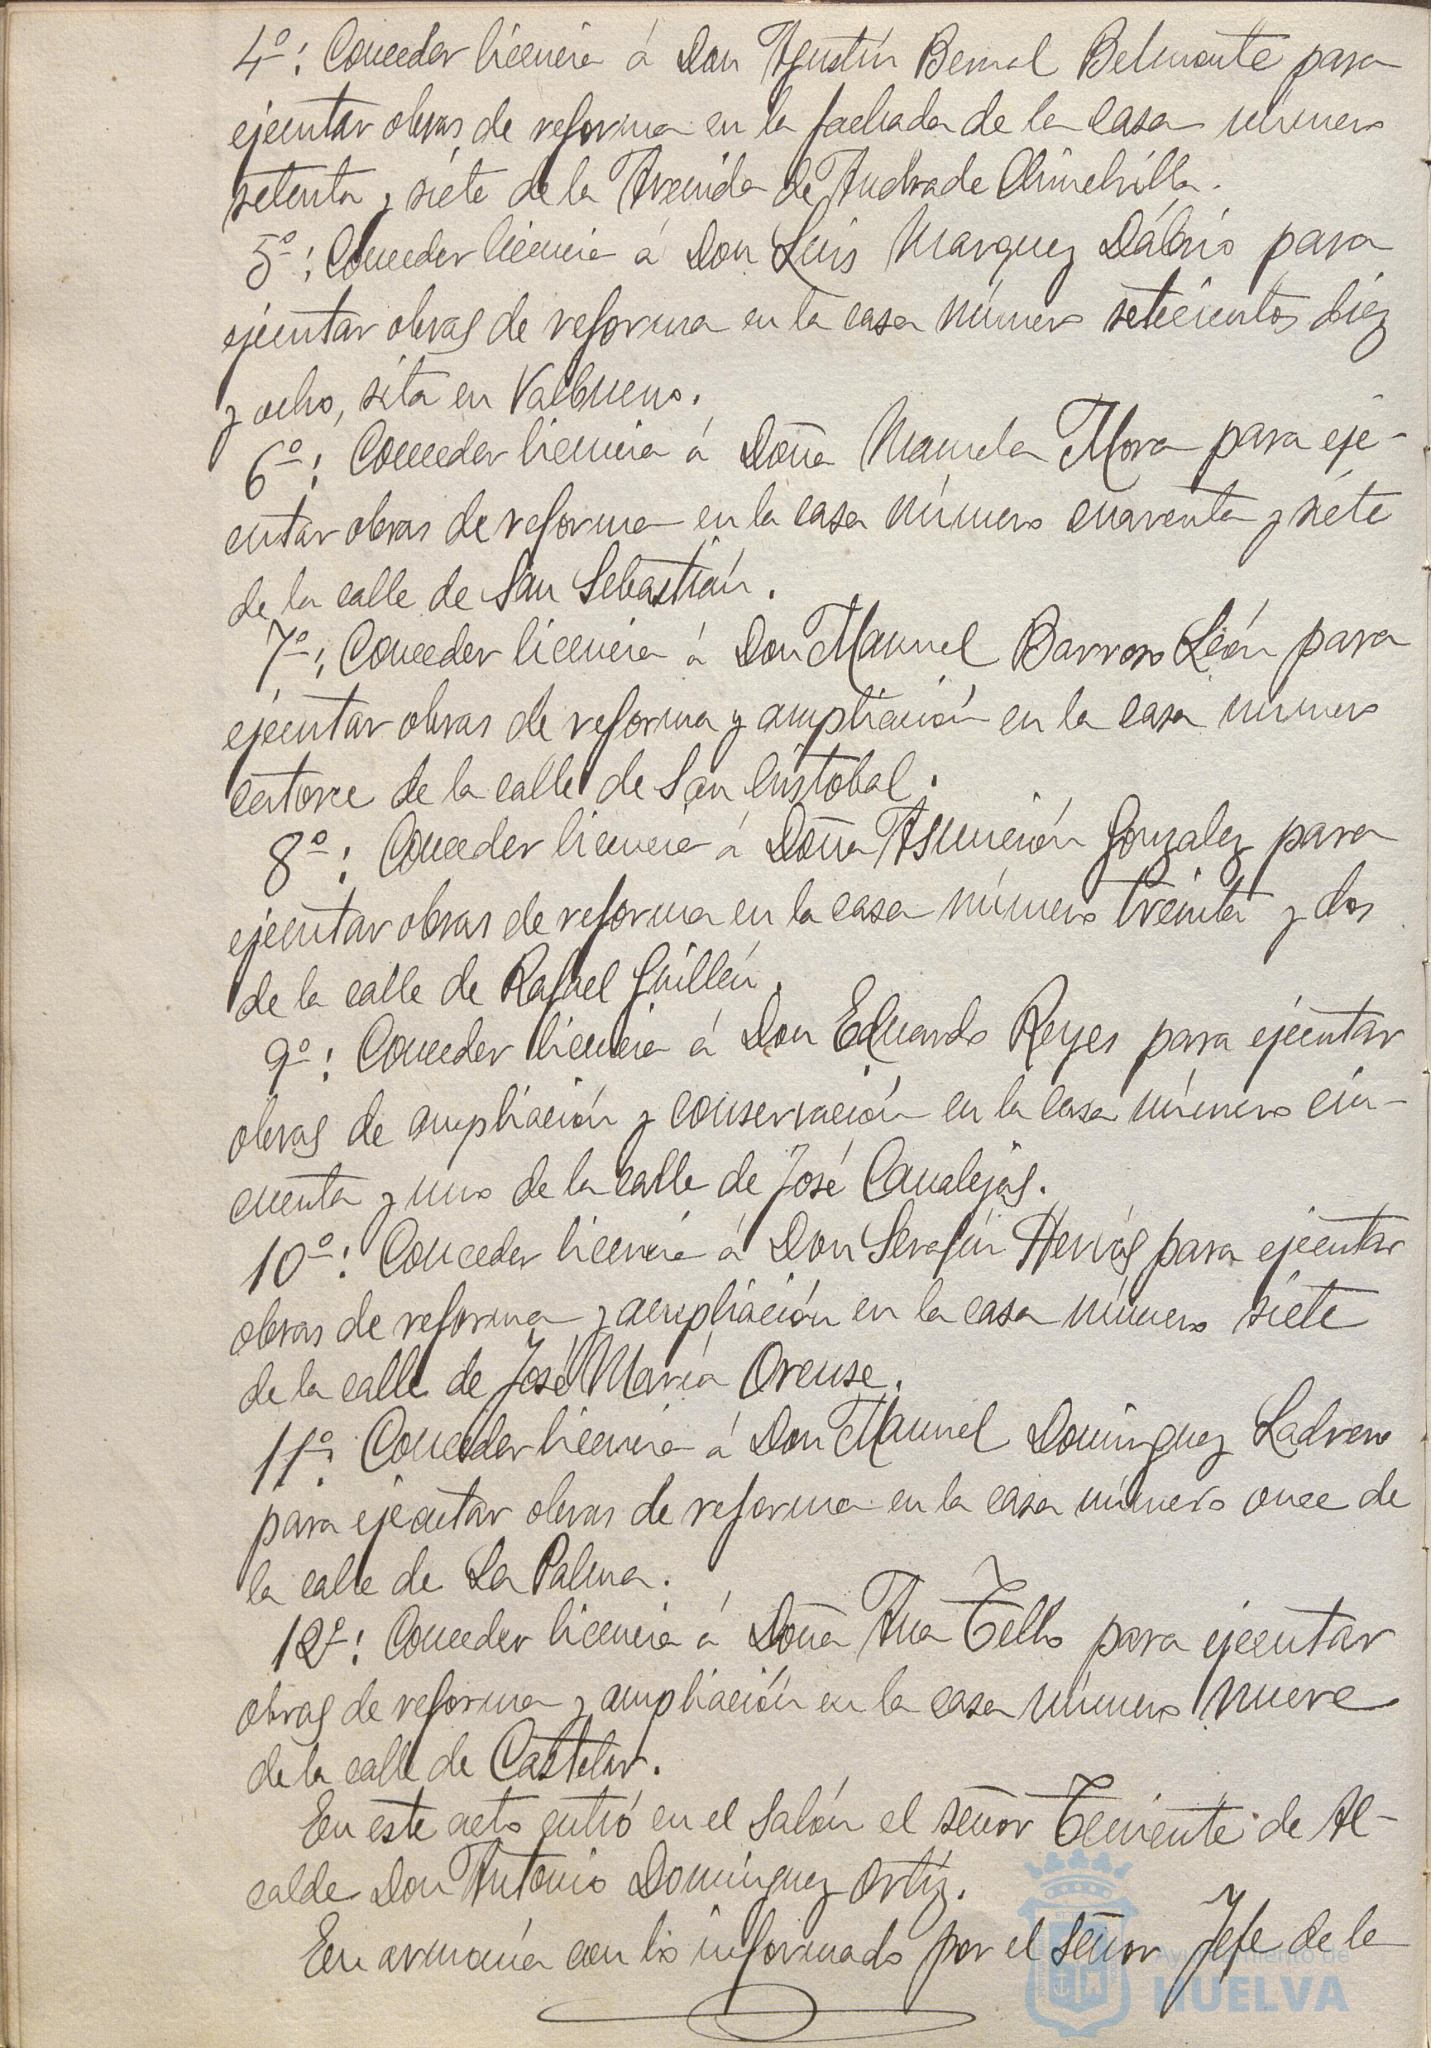 4º: Conceder licencia á Don Agustín Bernal Belmonte para
ejecutar obras de reforma en la fachada de la casa número
setenta y siete de la Avenida de Andrade Chinchilla.
5º: Conceder licencia á Don Luis Marquez Dábrio para
ejecutar obras de reforma en la casa número setecientos diez
y ocho, sita en Valbueno.
6º: Conceder licencia á Doña Manuela Mora para eje-
cutar obras de reforma en la casa número cuarenta y siete
de la calle de San Sebastián.
7º: Conceder licencia á Don Manuel Barroso León para
ejecutar obras de reforma y ampliación en la casa número
catorce de la calle de San Cristobal.
8º: Conceder licencia á Doña Asunción Gonzalez para
ejecutar obras de reforma en la casa número treinta y dos
de la calle de Rafael Guillén.
9º: Conceder licencia á Don Eduardo Reyes para ejecutar
obras de ampliación y conservación en la casa número cin-
cuenta y uno de la calle de José Canalejas.
10º: Conceder licencia á Don Serafín Hervás para ejecutar
obras de reforma y ampliación en la casa número siete
de la calle de José María Orense.
11º: Conceder licencia á Don Manuel Dominguez Ladrero
para ejecutar obras de reforma en la casa número once de
la calle de La Palma.
12º: Conceder licencia á Doña Ana Tello para ejecutar
obras de reforma y ampliación en la casa número nueve
de la calle de Castelar.
En este acto entró en el Salón el señor Teniente de Al-
calde Don Antonio Dominguez Ortíz.
En armonía con lo informado por el señor Jefe de la
Ayuntamiento de
HUELVA